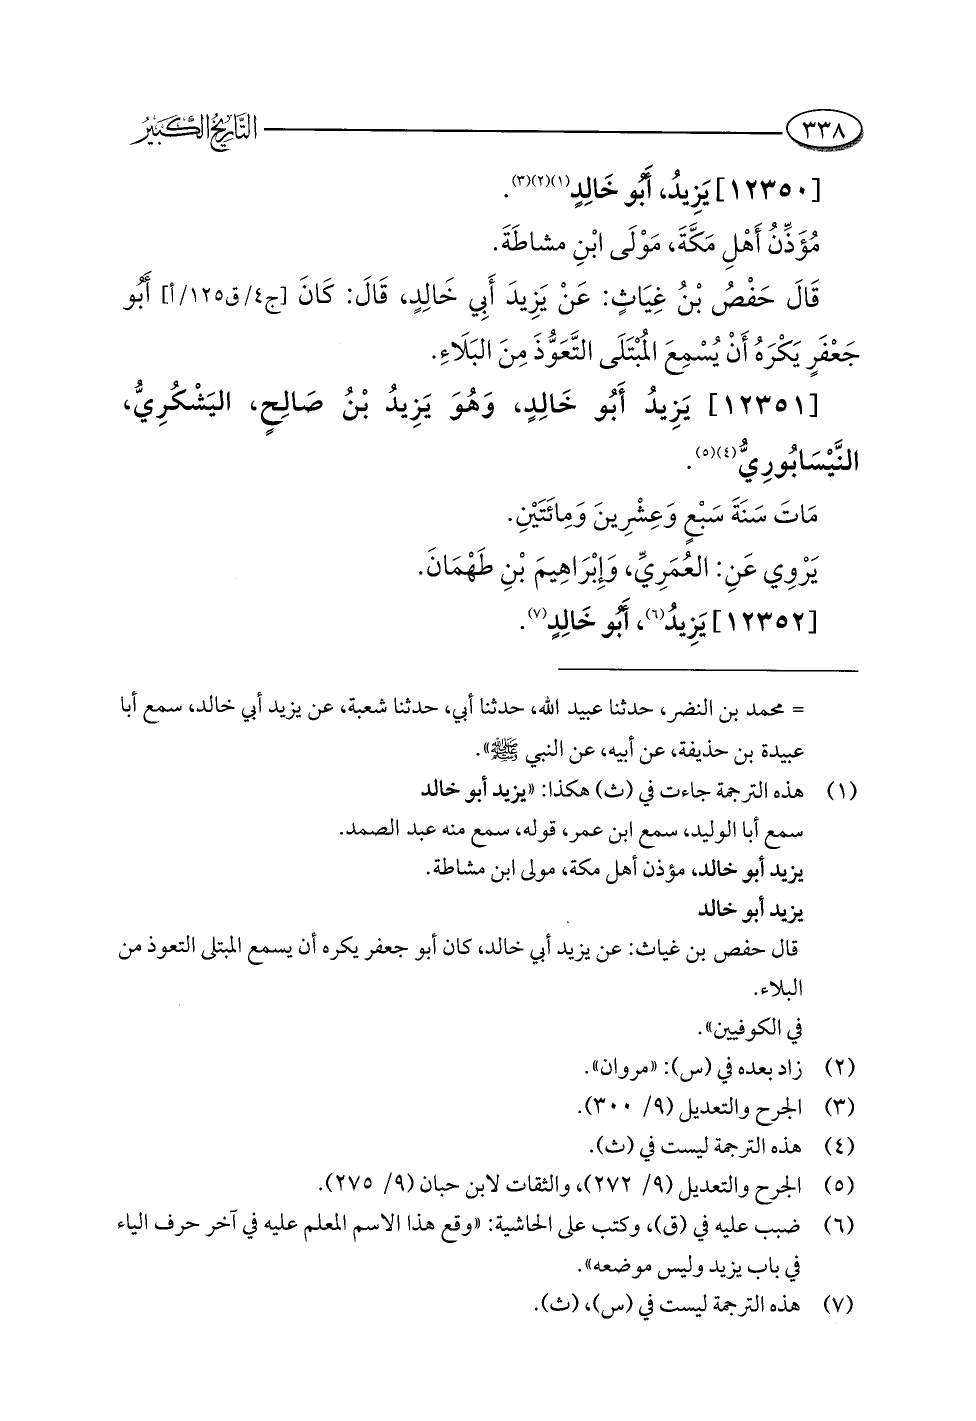 ٣٣٨ التاريخ الكبير
[١٢٣٥٠] يَزِيدُ، أَبُو خَالِدٍ(١)(٢)(٣).
مُؤَذِّنُ أَهْلِ مَكَّةَ، مَوْلَى ابْنِ مشاطَةَ.
قَالَ حَفْصُ بْنُ غِيَاثٍ: عَنْ يَزِيدَ أَبِي خَالِدٍ، قَالَ: كَانَ [ج٤/ ق١٢٥/أ] أَبُو
جَعْفَرٍ يَكْرَهُ أَنْ يُسْمِعَ المُبْتَلَى التَّعَوُّذَ مِنَ البَلَاءِ.
[١٢٣٥١] يَزِيدُ أَبُو خَالِدٍ، وَهُوَ يَزِيدُ بْنُ صَالِحٍ، اليَشْكُرِيُّ،
النَّيْسَابُورِيُّ(٤)(٥).
مَاتَ سَنَةَ سَبْعٍ وَعِشْرِينَ وَمِائَتَيْنِ.
يَرْوِي عَنِ: العُمَرِيِّ، وَإِبْرَاهِيمَ بْنِ طَهْمَانَ.
[١٢٣٥٢] يَزِيدُ(٦)، أَبُو خَالِدٍ(٧).
= محمد بن النضر، حدثنا عبيد الله، حدثنا أبي، حدثنا شعبة، عن يزيد أبي خالد، سمع أبا
عبيدة بن حذيفة، عن أبيه، عن النبي ﷺ».
(١) هذه الترجمة جاءت في (ث) هكذا: «يزيد أبو خالد
سمع أبا الوليد، سمع ابن عمر، قوله، سمع منه عبد الصمد.
يزيد أبو خالد، مؤذن أهل مكة، مولى ابن مشاطة.
يزيد أبو خالد
قال حفص بن غياث: عن يزيد أبي خالد، كان أبو جعفر يكره أن يسمع المبتلى التعوذ من
البلاء.
في الكوفيين».
(٢) زاد بعده في (س): «مروان».
(٣) الجرح والتعديل (٩/ ٣٠٠).
(٤) هذه الترجمة ليست في (ث).
(٥) الجرح والتعديل (٩/ ٢٧٢)، والثقات لابن حبان (٩/ ٢٧٥).
(٦) ضبب عليه في (ق)، وكتب على الحاشية: «وقع هذا الاسم المعلم عليه في آخر حرف الياء
في باب يزيد وليس موضعه».
(٧) هذه الترجمة ليست في (س)، (ث).